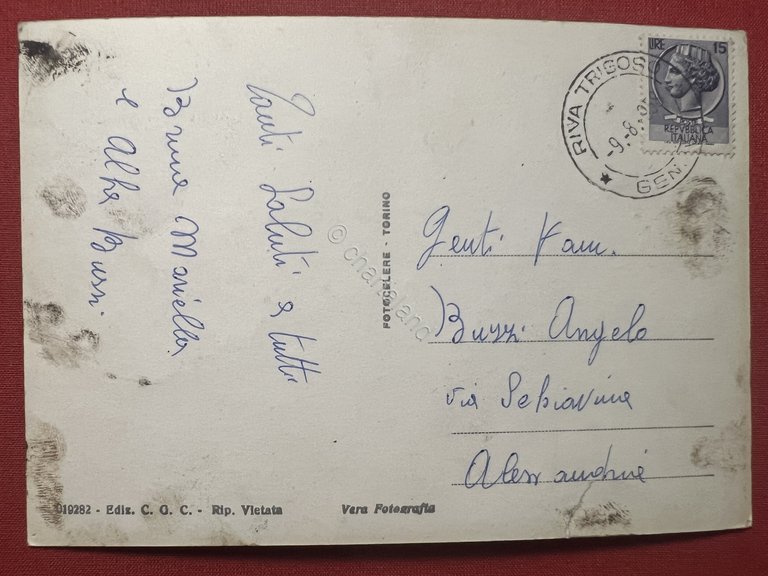 Tanti Saluti a tutti
Bruna Mariella
e Alba Bussi
FOTOCELERE - TORINO
LIRE 15
REPVBBLICA
ITALIANA
RIVA TRIGOSO
-9.-8.
GEN.
Genti Fam.
Buzzi Angelo
via Schiavina
Alessandria
019282 - Ediz. C. G. C. - Rip. Vietata
Vera Fotografia